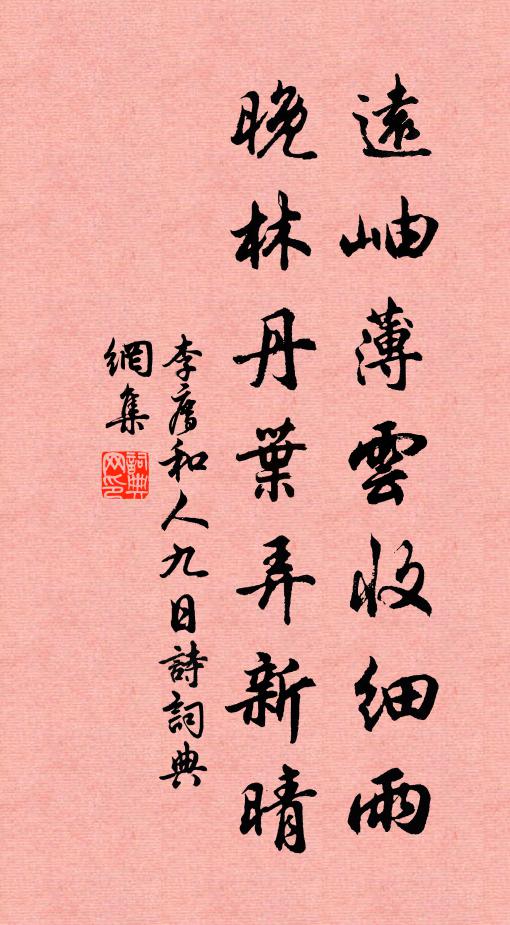 遠岫薄雲收細雨
晚林丹葉弄新晴
李廌和人九日詩詞典
網集
詞典網印